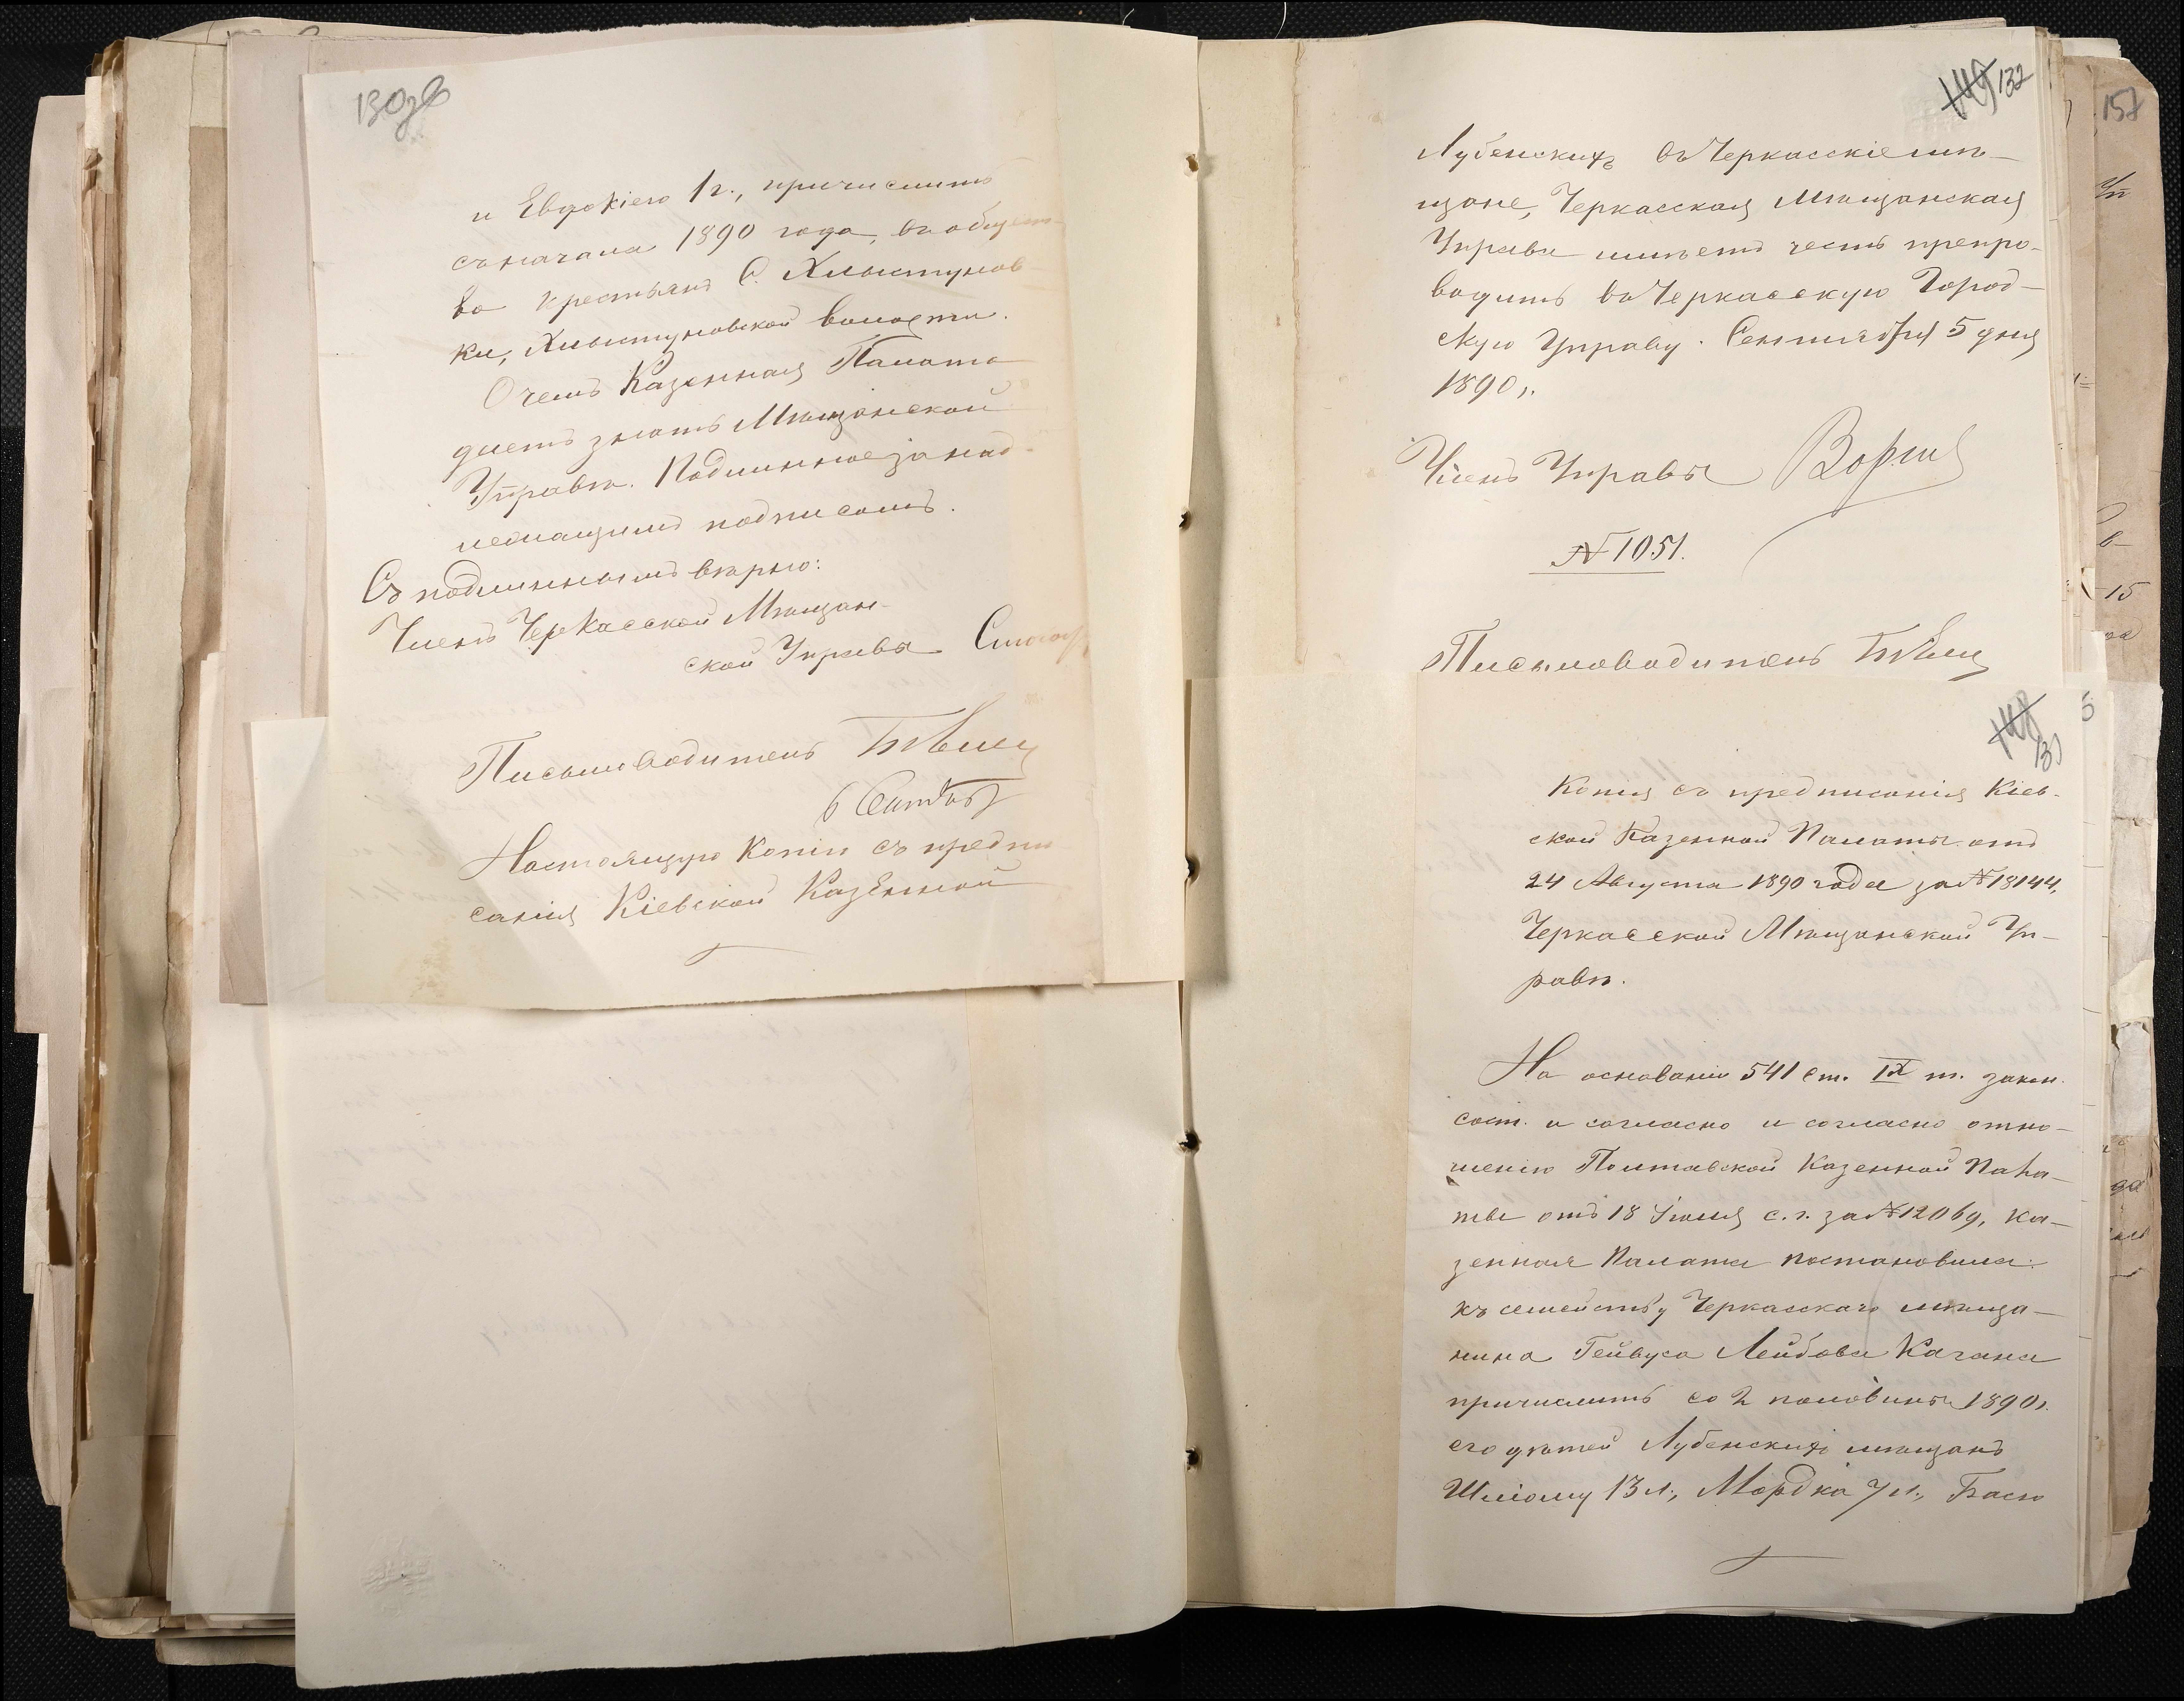 130 об
и Евдокiею 1 г., причислить
съ начала 1890 года, въ общест-
во крестьянъ С. Хлыстунов-
ки, Хлыстуновской волости.
О чемъ Казенная Палата
даетъ знать Мѣщанской
Управѣ. Подлинное за над-
лежащимъ подписомъ.
Съ подлиннымъ вѣрно:
Членъ Черкасской Мѣщан-
ской Управы
Письмоводитель
Настоящую Копiю съ предпи-
санiя Кiевской Казенной
132
Лубенскихъ въ Черкасскiе мѣ-
щане, Черкасская Мѣщанская
Управа имѣетъ честь препро-
водить въ Черкасскую Город-
скую Управу. Сентября 5 дня
1890 г.
Членъ Управы
№ 1051.
Письмоводитель
131
Копiя съ предписанiя Кiев-
ской Казенной Палаты отъ
24 Августа 1890 года за № 18144,
Черкасской Мѣщанской Уп-
равѣ.
На основанiи 541 ст. IX т. закон.
сост. и согласно и согласно отно-
шенiю Полтавской Казенной Пала-
ты отъ 18 Iюля с. г. за № 12069, Ка-
зенная Палата постановила:
къ семейству Черкасскаго мѣща-
нина Гейвуса Лейбова Кагана
причислить со 2 половины 1890 г.
его дѣтей Лубенскихъ мѣщанъ
Шлiому 13 л., Мордка 7 л., Басю
157
Уп
15